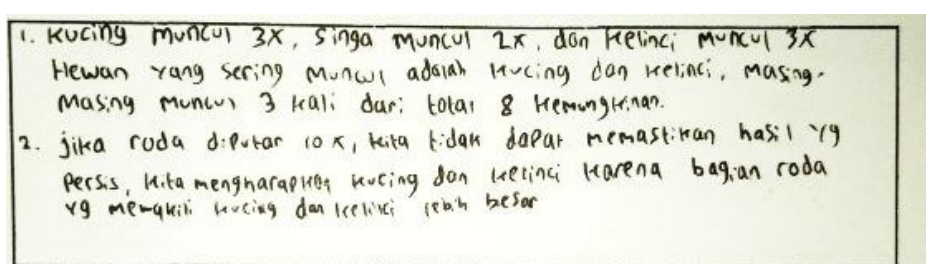 1. Kucing muncul 3x, Singa muncul 2x, dan kelinci muncul 3x
Hewan yang sering muncul adalah kucing dan kelinci, masing-
masing muncul 3 kali dari total 8 kemungkinan.
2. jika roda diputar 10x, kita tidak dapat memastikan hasil yg
persis, kita mengharapkan kucing dan kelinci karena bagian roda
yg mewakili kucing dan kelinci lebih besar